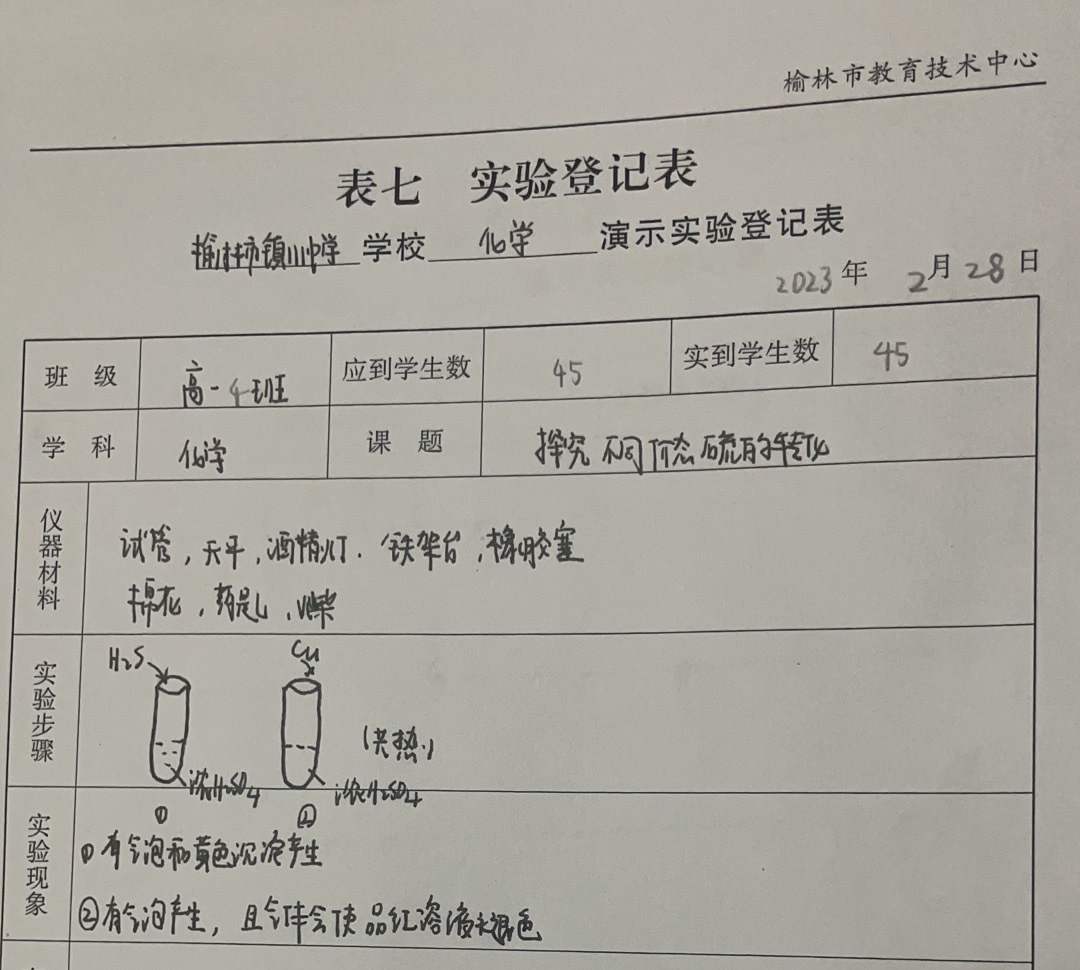 榆林市教育技术中心
表七 实验登记表
榆林市镇川中学 学校 化学 演示实验登记表
2023 年 2 月 28 日
班 级 高一4班 应到学生数 45 实到学生数 45
学 科 化学 课 题 探究不同价态硫的转化
仪器材料
试管,天平,酒精灯.铁架台,橡胶塞
棉花,药匙,火柴
实验步骤
H2S Cu
(加热)
浓H2SO4 浓H2SO4
① ②
实验现象
①有气泡和黄色沉淀产生
②有气泡产生,且气体会使品红溶液褪色